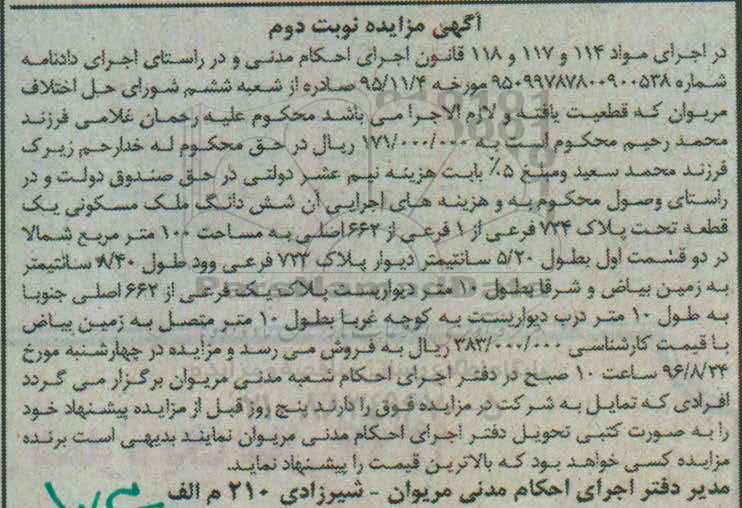 آگهی مزایده نوبت دوم
در اجرای مواد ۱۱۴ و ۱۱۷ و ۱۱۸ قانون اجرای احکام مدنی و در راستای اجرای دادنامه
شماره ۹۵۰۹۹۷۸۷۸۰۰۹۰۰۵۳۸ مورخه ۹۵/۱۱/۴ صادره از شعبه ششم شورای حل اختلاف
مریوان که قطعیت یافته و لازم الاجرا می باشد محکوم علیه رحمان غلامی فرزند
محمد رحیم محکوم است به ۱۷۱/۰۰۰/۰۰۰ ریال در حق محکوم له خدارحم زیرک
فرزند محمد سعید ومبلغ ۵٪ بابت هزینه نیم عشر دولتی در حق صندوق دولت و در
راستای وصول محکوم به و هزینه های اجرایی آن شش دانگ ملک مسکونی یک
قطعه تحت پلاک ۷۳۴ فرعی از ۱ فرعی از ۶۶۲ اصلی به مساحت ۱۰۰ متر مربع شمالا
در دو قسمت اول بطول ۵/۲۰ سانتیمتر دیوار پلاک ۷۳۳ فرعی وود طول ۸/۴۰ سانتیمتر
به زمین بیاض و شرقا بطول ۱۰ متر دیواریست پلاک یک فرعی از ۶۶۲ اصلی جنوبا
به طول ۱۰ متر درب دیواریست به کوچه غربا بطول ۱۰ متر متصل به زمین بیاض
با قیمت کارشناسی ۳۸۳/۰۰۰/۰۰۰ ریال به فروش می رسد و مزایده در چهارشنبه مورخ
۹۶/۸/۲۴ ساعت ۱۰ صبح در دفتر اجرای احکام شعبه مدنی مریوان برگزار می گردد
افرادی که تمایل به شرکت در مزایده فوق را دارند پنج روز قبل از مزایده پیشنهاد خود
را به صورت کتبی تحویل دفتر اجرای احکام مدنی مریوان نمایند بدیهی است برنده
مزایده کسی خواهد بود که بالاترین قیمت را پیشنهاد نماید.
مدیر دفتر اجرای احکام مدنی مریوان - شیرزادی ۲۱۰ م الف
ParsNamadData